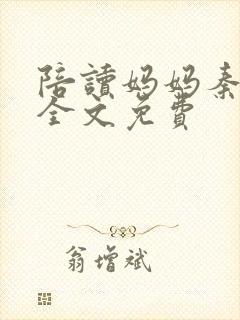 陪讀妈妈秦
全文免費
翁增斌